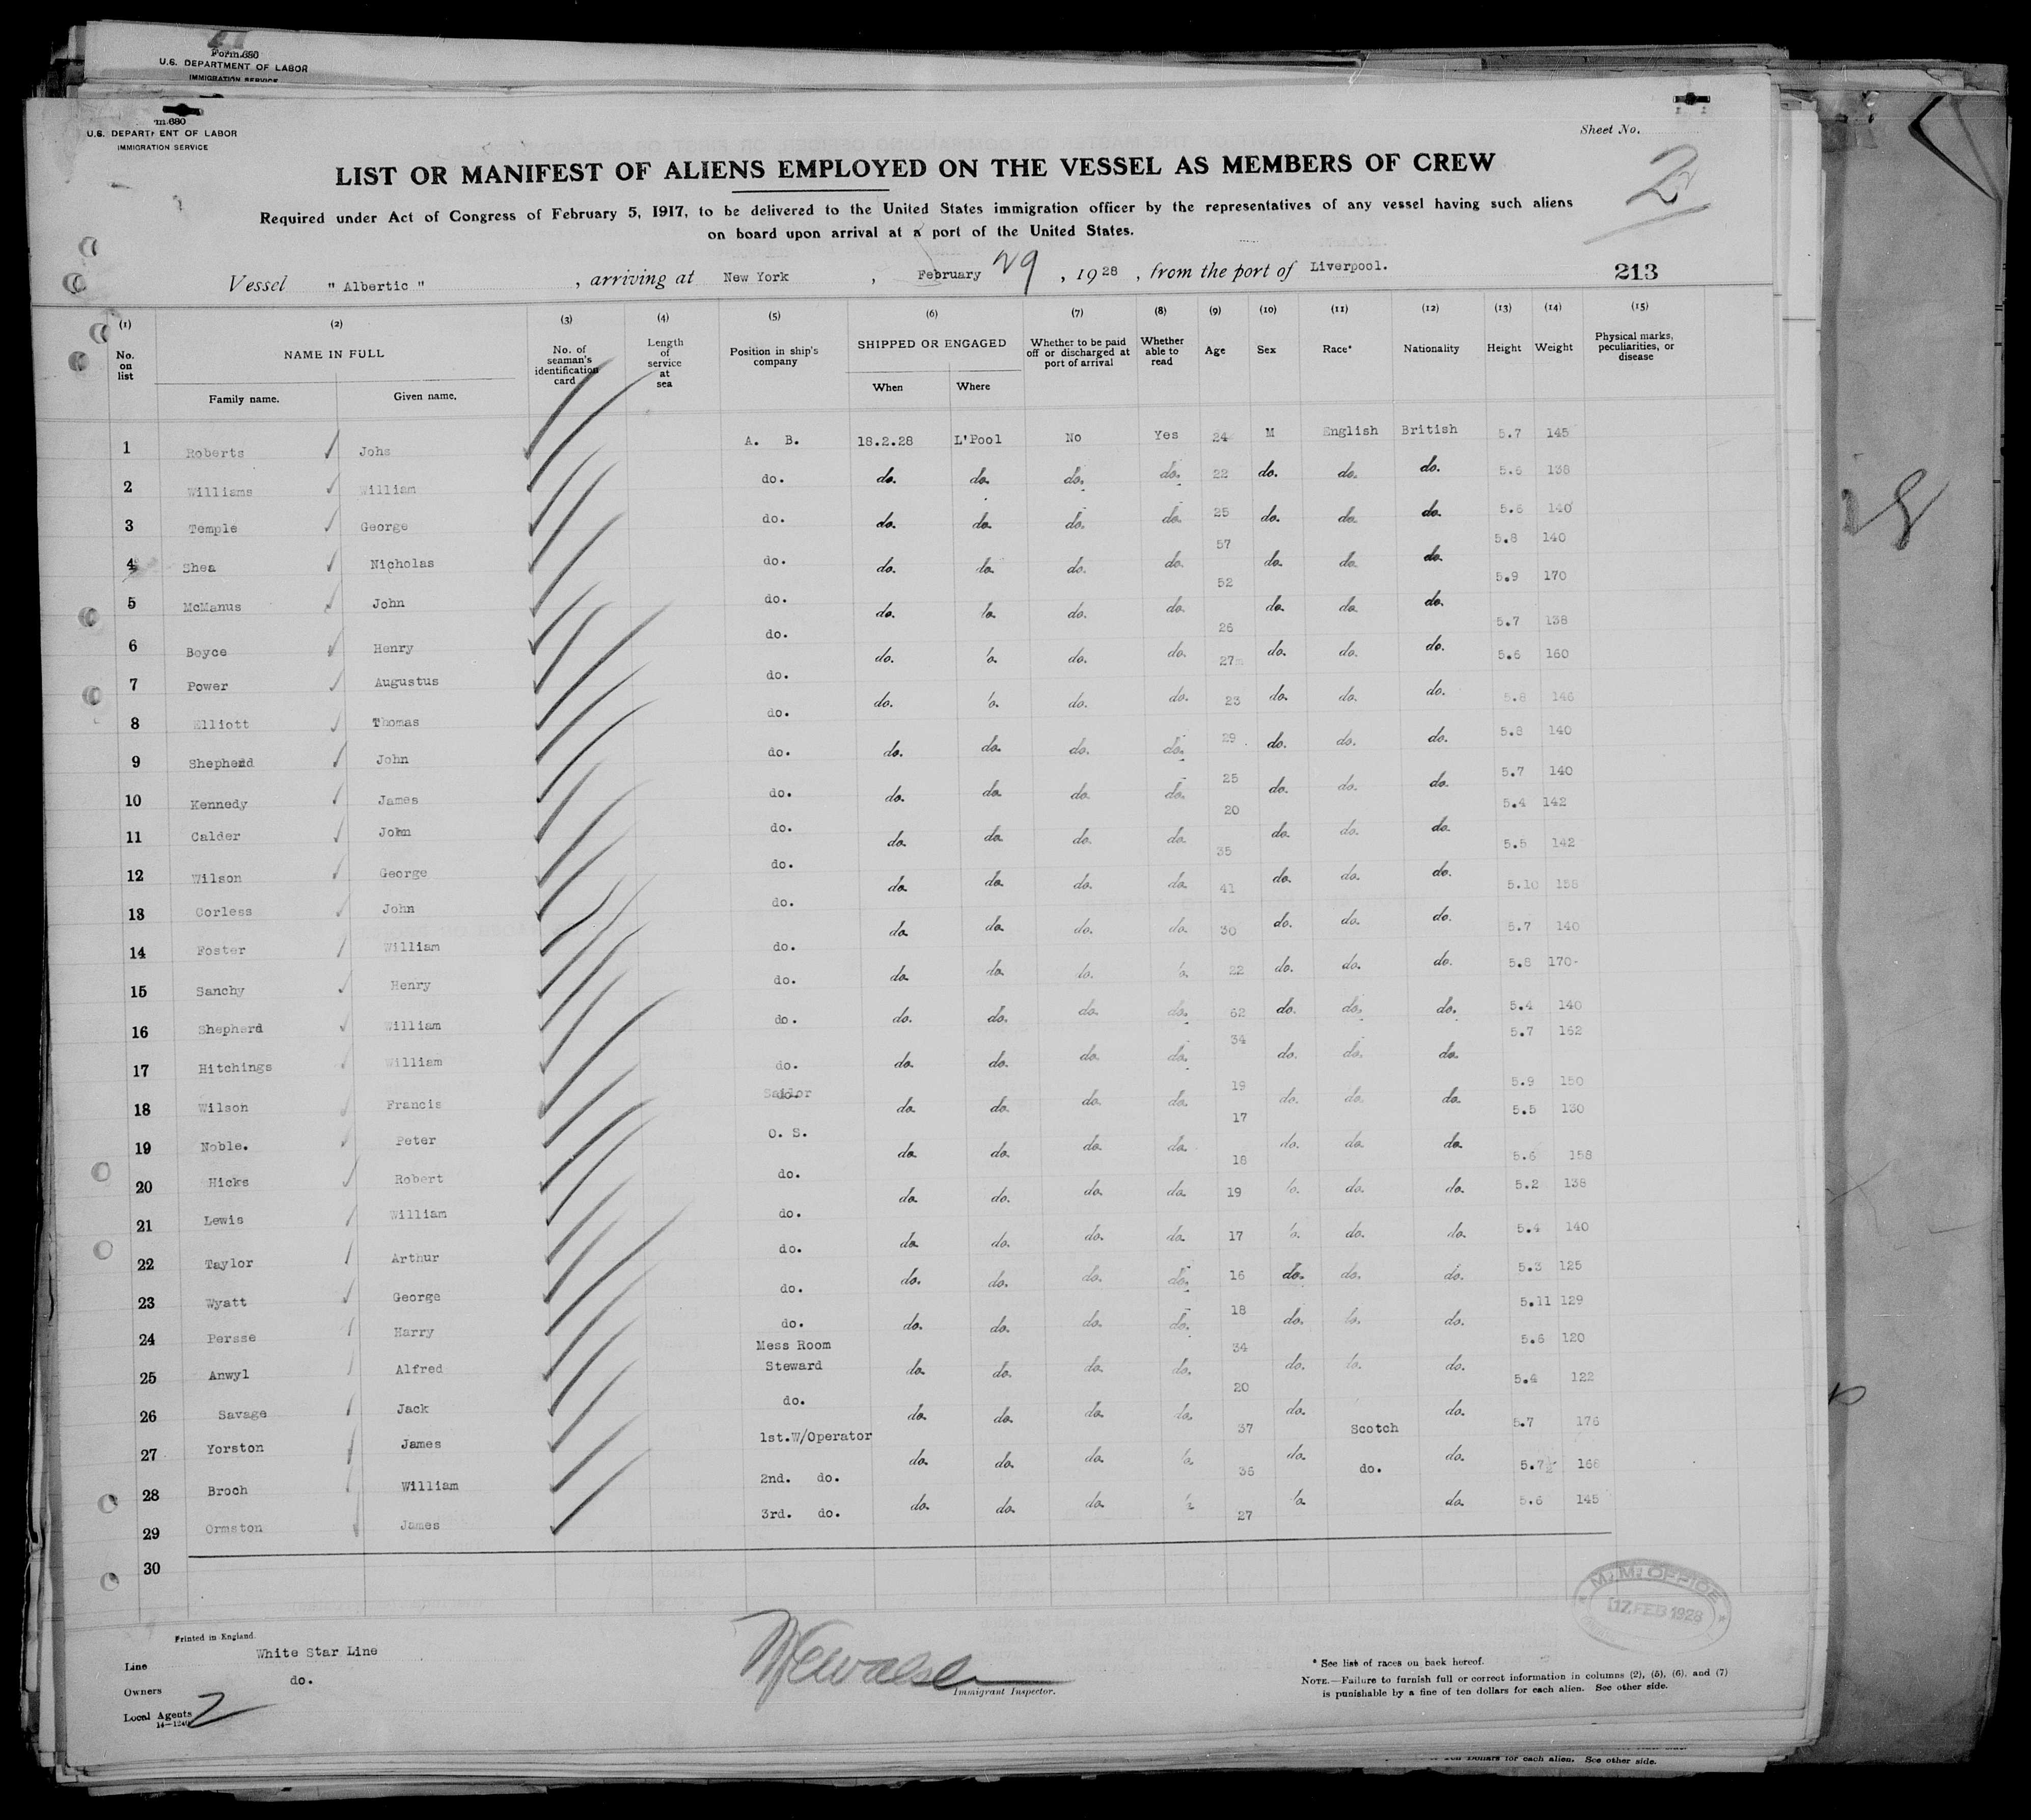 Form 680
U.S. DEPARTMENT OF LABOR
IMMIGRATION SERVICE
m 680
U.S. DEPARTMENT OF LABOR
IMMIGRATION SERVICE
Sheet No.
2
LIST OR MANIFEST OF ALIENS EMPLOYED ON THE VESSEL AS MEMBERS OF CREW
Required under Act of Congress of February 5, 1917, to be delivered to the United States immigration officer by the representatives of any vessel having such aliens
on board upon arrival at a port of the United States.
Vessel " Albertic " , arriving at New York , February 29 , 1928 , from the port of Liverpool. 213
(1) (2) (3) (4) (5) (6) (7) (8) (9) (10) (11) (12) (13) (14) (15)
No. on list NAME IN FULL Family name. Given name. No. of seaman's identification card Length of service at sea Position in ship's company SHIPPED OR ENGAGED When Where Whether to be paid off or discharged at port of arrival Whether able to read Age Sex Race* Nationality Height Weight Physical marks, peculiarities, or disease
1 Roberts Johs A. B. 18.2.28 L'Pool No Yes 24 M English British 5.7 145
2 Williams William do. do. do. do. do. 22 do. do. do. 5.6 138
3 Temple George do. do. do. do. do. 25 do. do. do. 5.6 140
4 Shea Nicholas do. do. do. do. do. 57 do. do. do. 5.8 140
5 McManus John do. do. do. do. do. 52 do. do. do. 5.9 170
6 Boyce Henry do. do. do. do. do. 26 do. do. do. 5.7 138
7 Power Augustus do. do. do. do. do. 27 do. do. do. 5.6 160
8 Elliott Thomas do. do. do. do. do. 23 do. do. do. 5.8 146
9 Shepherd John do. do. do. do. do. 29 do. do. do. 5.8 140
10 Kennedy James do. do. do. do. do. 25 do. do. do. 5.7 140
11 Calder John do. do. do. do. do. 20 do. do. do. 5.4 142
12 Wilson George do. do. do. do. do. 35 do. do. do. 5.5 142
13 Corless John do. do. do. do. do. 41 do. do. do. 5.10
14 Foster William do. do. do. do. do. 30 do. do. do. 5.7 140
15 Sanchy Henry do. do. do. do. do. 22 do. do. do. 5.8 170
16 Shepherd William do. do. do. do. do. 62 do. do. do. 5.4 140
17 Hitchings William do. do. do. do. do. 34 do. do. do. 5.7 162
18 Wilson Francis Sailor do. do. do. do. 19 do. do. do. 5.9 150
19 Noble. Peter O. S. do. do. do. do. 17 do. do. do. 5.5 130
20 Hicks Robert do. do. do. do. do. 18 do. do. do. 5.6 158
21 Lewis William do. do. do. do. do. 19 do. do. do. 5.2 138
22 Taylor Arthur do. do. do. do. do. 17 do. do. do. 5.4 140
23 Wyatt George do. do. do. do. do. 16 do. do. do. 5.3 125
24 Persse Harry do. do. do. do. do. 18 do. do. do. 5.11 129
25 Anwyl Alfred Mess Room Steward do. do. do. do. 34 do. do. do. 5.6 120
26 Savage Jack do. do. do. do. do. 20 do. do. 5.4 122
27 Yorston James 1st.W/Operator do. do. do. do. 37 do. Scotch do. 5.7 176
28 Broch William 2nd. do. do. do. do. do. 36 do. do. do. 5.7½ 168
29 Ormston James 3rd. do. 27 5.6 145
30
M.M. OFFICE
17 FEB 1928
Printed in England.
Line White Star Line
Owners do.
Local Agents 2
14—1240
Immigrant Inspector.
* See list of races on back hereof.
NOTE.—Failure to furnish full or correct information in columns (2), (5), (6), and (7)
is punishable by a fine of ten dollars for each alien. See other side.
dollars for each alien. See other side.